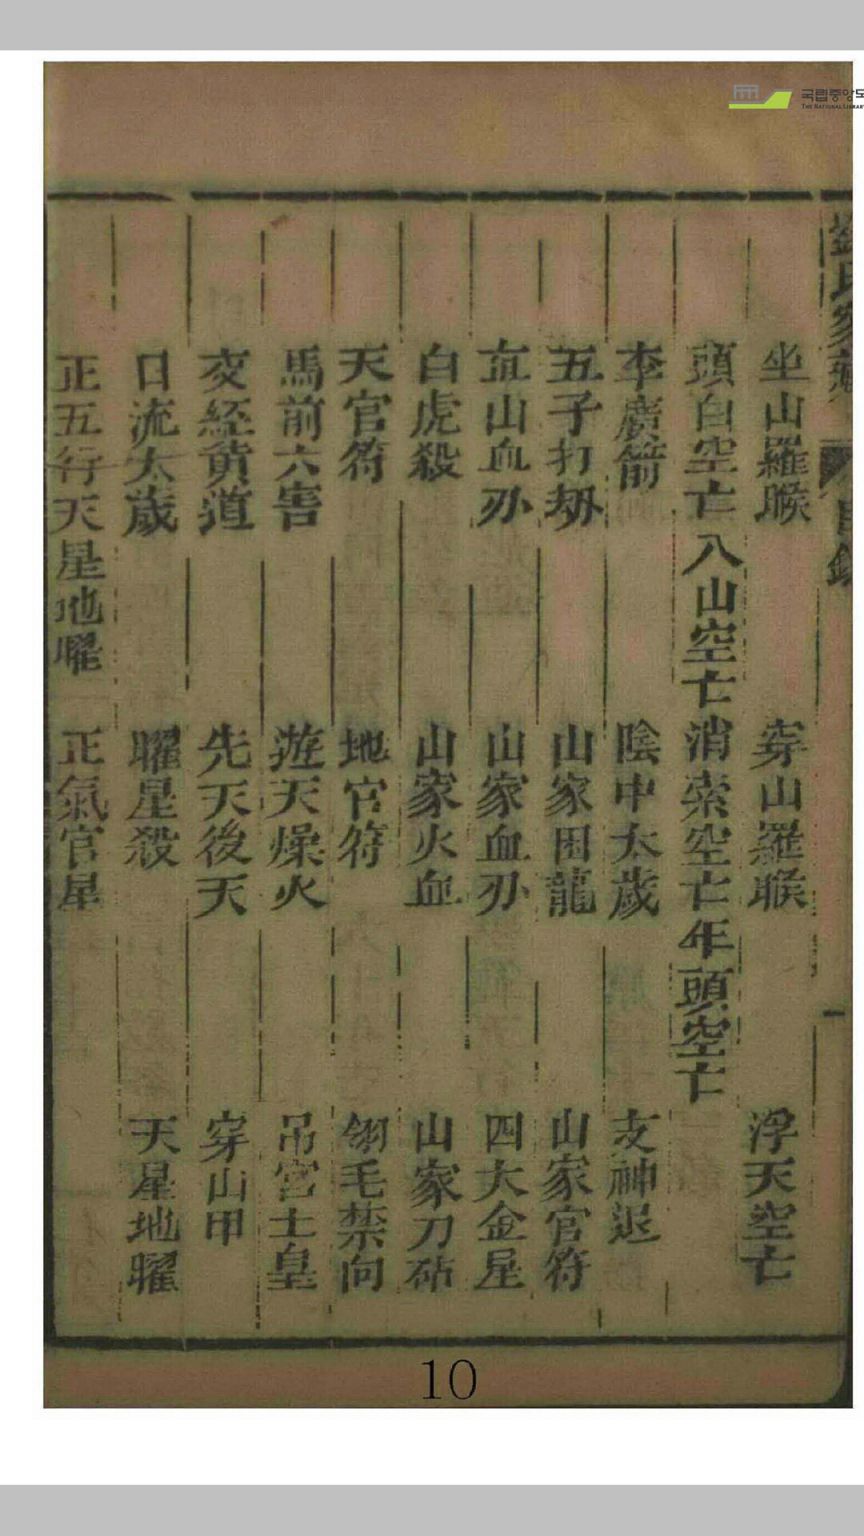 坐山羅睺 穿山羅睺 浮天空亡
頭白空亡 入山空亡 消索空亡 年頭空亡
李廣箭 陰中太歲 支神退
五子打刼 山家困龍 山家官符
血山血刃 山家血刃 四大金星
白虎殺 山家火血 山家刀砧
天官符 地官符 翎毛禁向
馬前六害 遊天燥火 吊宮土皇
交經黄道 先天後天 穿山甲
日流太歲 曜星殺 天星地曜
正五行天星地曜 正氣官星
국립중앙도
THE NATIONAL LIBRAR
10